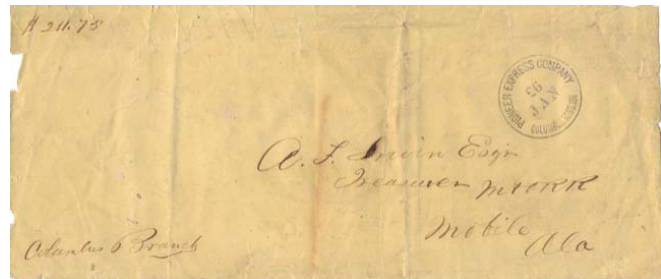 $ 211.75
PIONEER EXPRESS COMPANY
26
JAN
A. F. Irwin Esqr
Treasurer M&ORR
Mobile
Ala
Columbus Branch